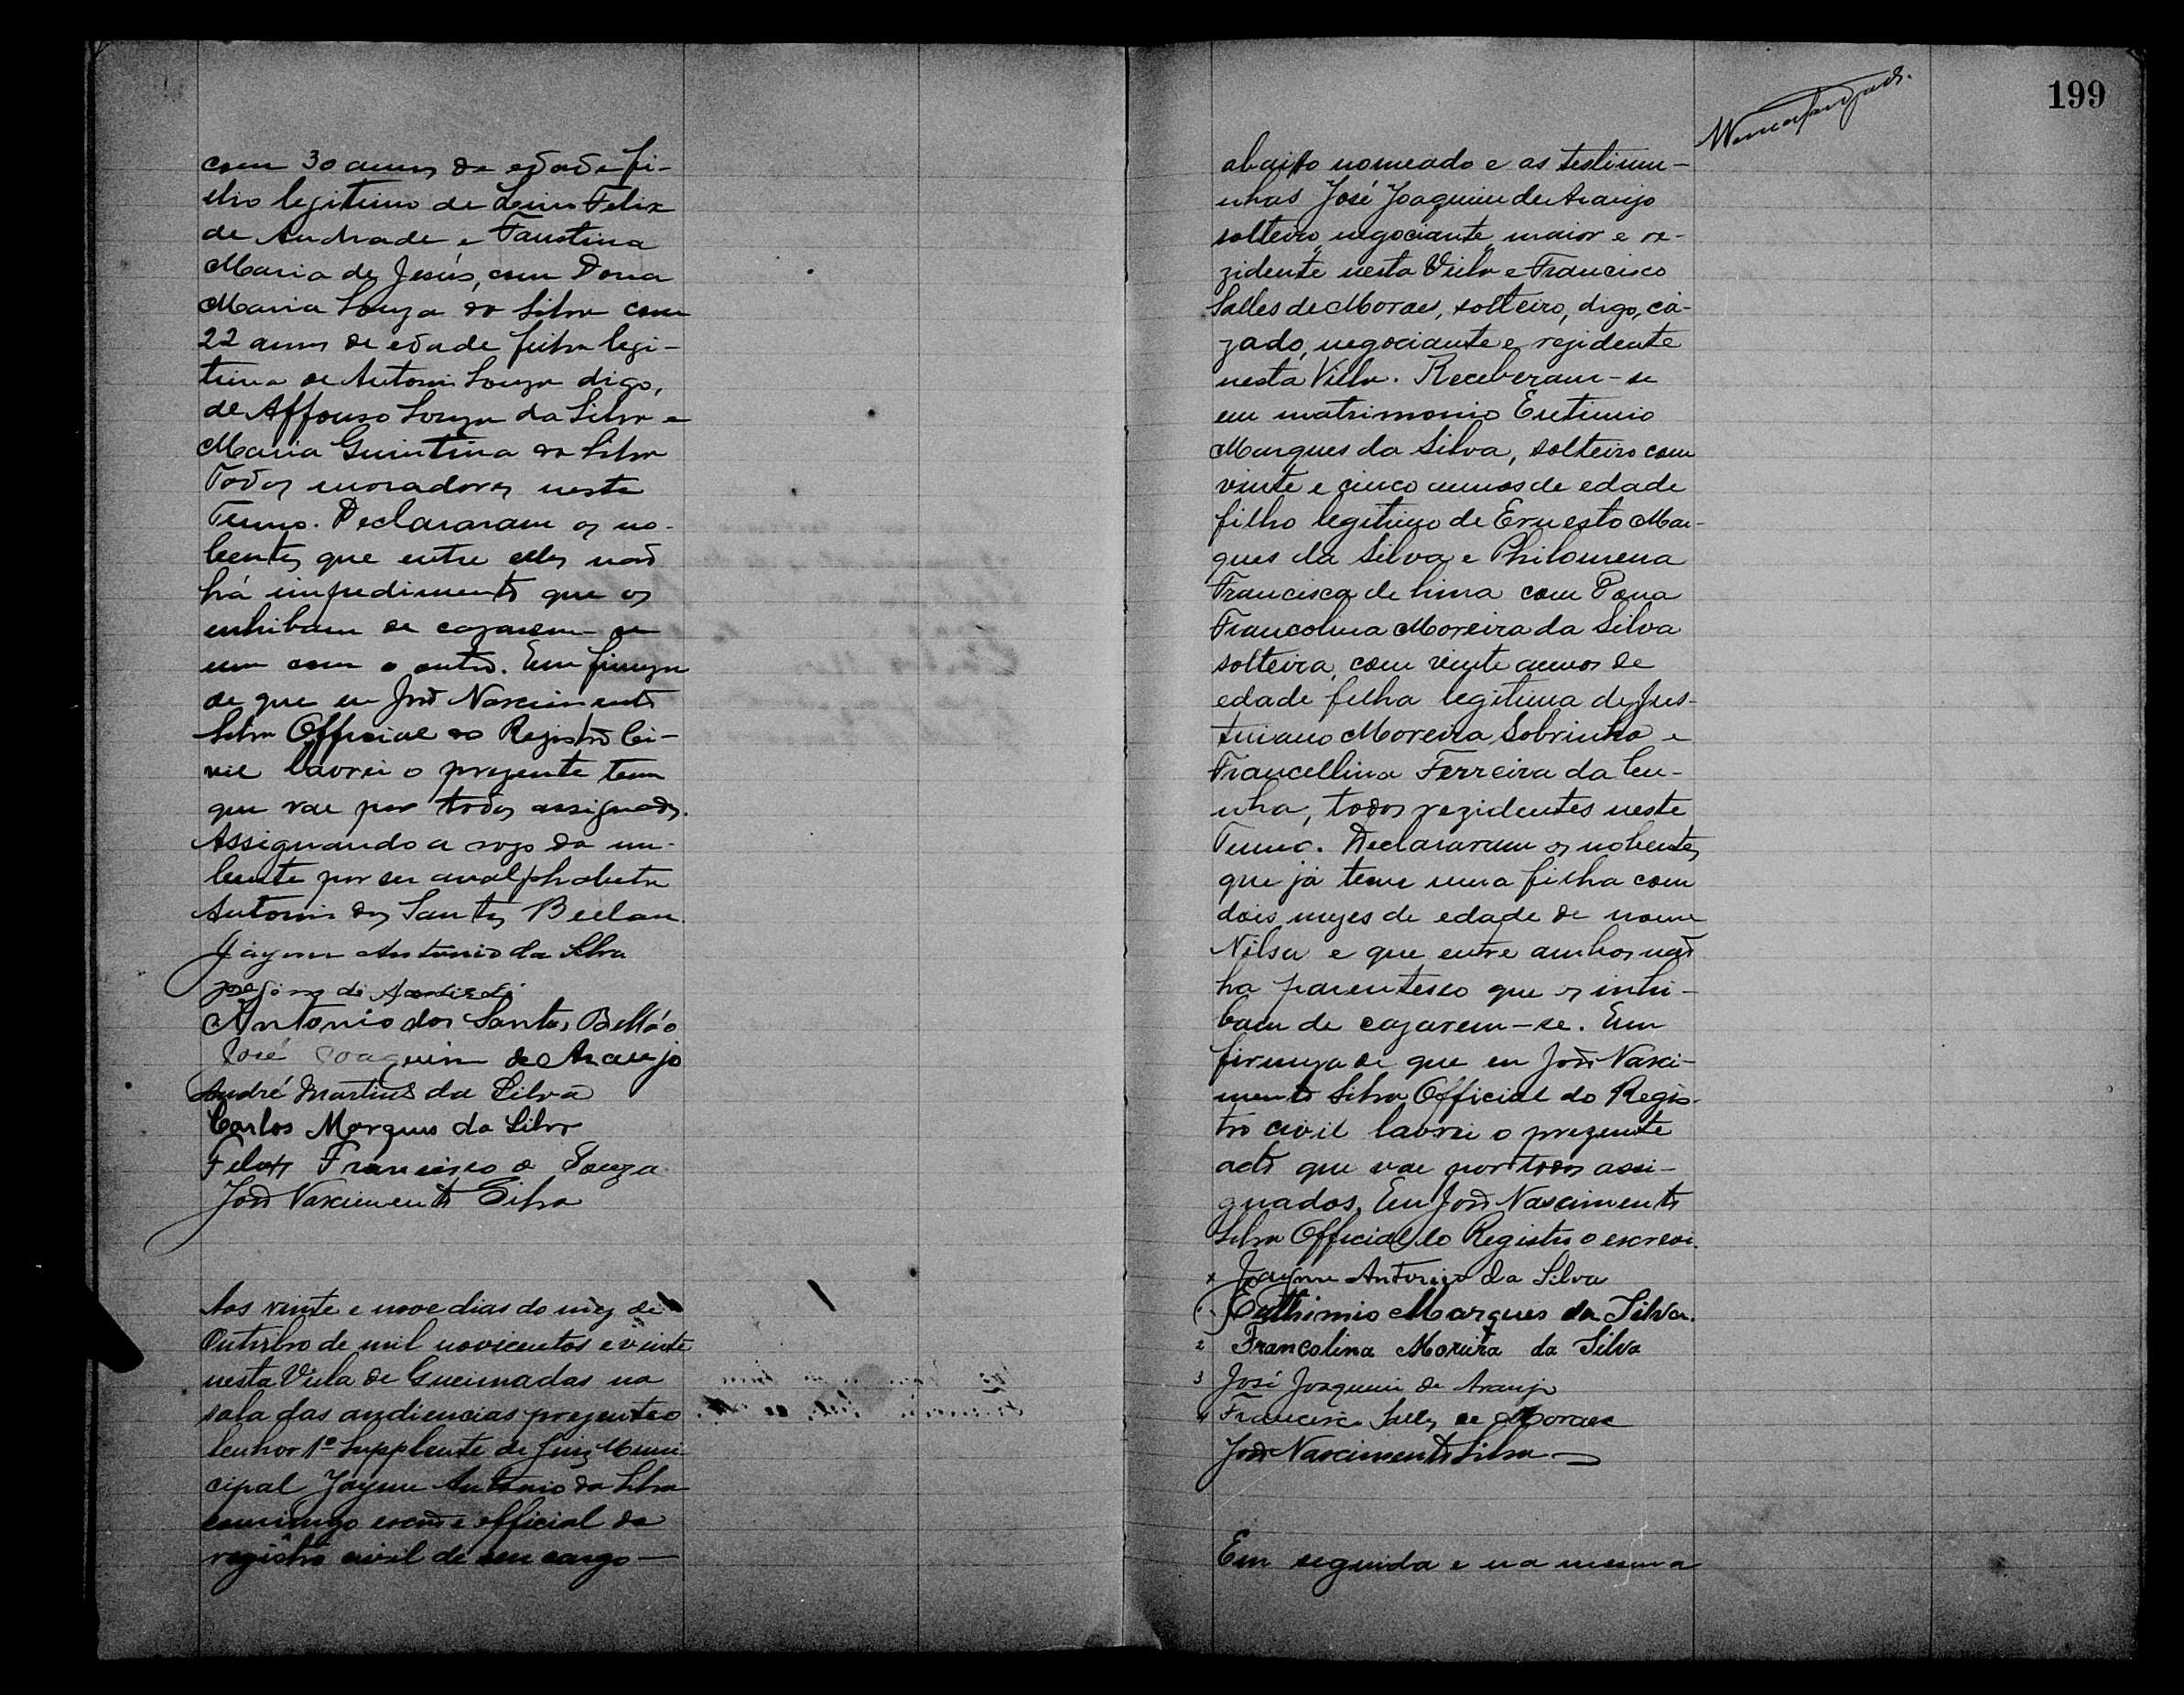 com 30 annos de edade fi-
lho legitimo de Lino Felix
de Andrade e Faustina
Maria de Jesús, com Dona
Maria Souza da Silva com
22 annos de edade filha legi-
tima de Antonio Souza digo,
de Affonso Souza da Silva e
Maria Guintina da Silva
Todos moradores neste
Termo. Declararam os nu-
bentes que entre elles não
há impedimento que os
inhibam de cazarem-se
um com o outro. Em firmeza
de que eu José Nascimento
Silva Official do Registro Ci-
vil lavrei o prezente termo
que vae por todos assignados.
Assignando a rogo da nu-
bente por ser analphabeta
Antonio dos Santos Beelau
Jayme Antonio da Silva
José de Andrade
Antonio dos Santos Bellão
José Joaquim de Araujo
André Martins da Silva
Carlos Marques da Silva
Felix Francisco de Souza
José Nascimento Silva
Aos vinte e nove dias do mez de
Outubro de mil novicentos e vinte
nesta Villa de Gueimadas na
sala das audiencias prezente o
Senhor 1º Supplente de Juiz Muni-
cipal Jayme Antonio da Silva
commigo escrm e official do
registro civil de seu cargo —
199
abaixo nomeado e as testimu-
nhas José Joaquim de Araujo
solteiro, negociante, maior e re-
zidente nesta Villa e Francisco
Salles de Moraes, solteiro, digo, ca-
zado, negociante e rezidente
nesta Villa. Receberam-se
em matrimonio Eutimio
Marques da Silva, solteiro com
vinte e cinco annos de edade
filho legitimo de Ernesto Mar-
ques da Silva e Philomena
Francisca de Lima com Dona
Francolina Moreira da Silva
solteira, com vinte annos de
edade filha legitima de Jus-
tiniano Moreira Sobrinho e
Francellina Ferreira da Cu-
nha, todos rezidentes neste
Termo. Declararam os nubentes
que já teem uma filha com
dois mezes de edade de nome
Nilsa e que entre ambos não
ha parentesco que os inhi-
bam de cazarem-se. Em
firmeza de que eu José Nasci-
mento Silva Official do Regis-
tro civil lavrei o prezente
acto que vae por todos assi-
gnados. Eu José Nascimento
Silva Official do Registro o escrevi.
x Jayme Antonio da Silva
1. Euthimio Marques da Silva.
2 Francolina Moreira da Silva
3 José Joaquim de Araujo
4 Francisco Salles de Moraes
José Nascimento Silva
Em seguida e na mesma